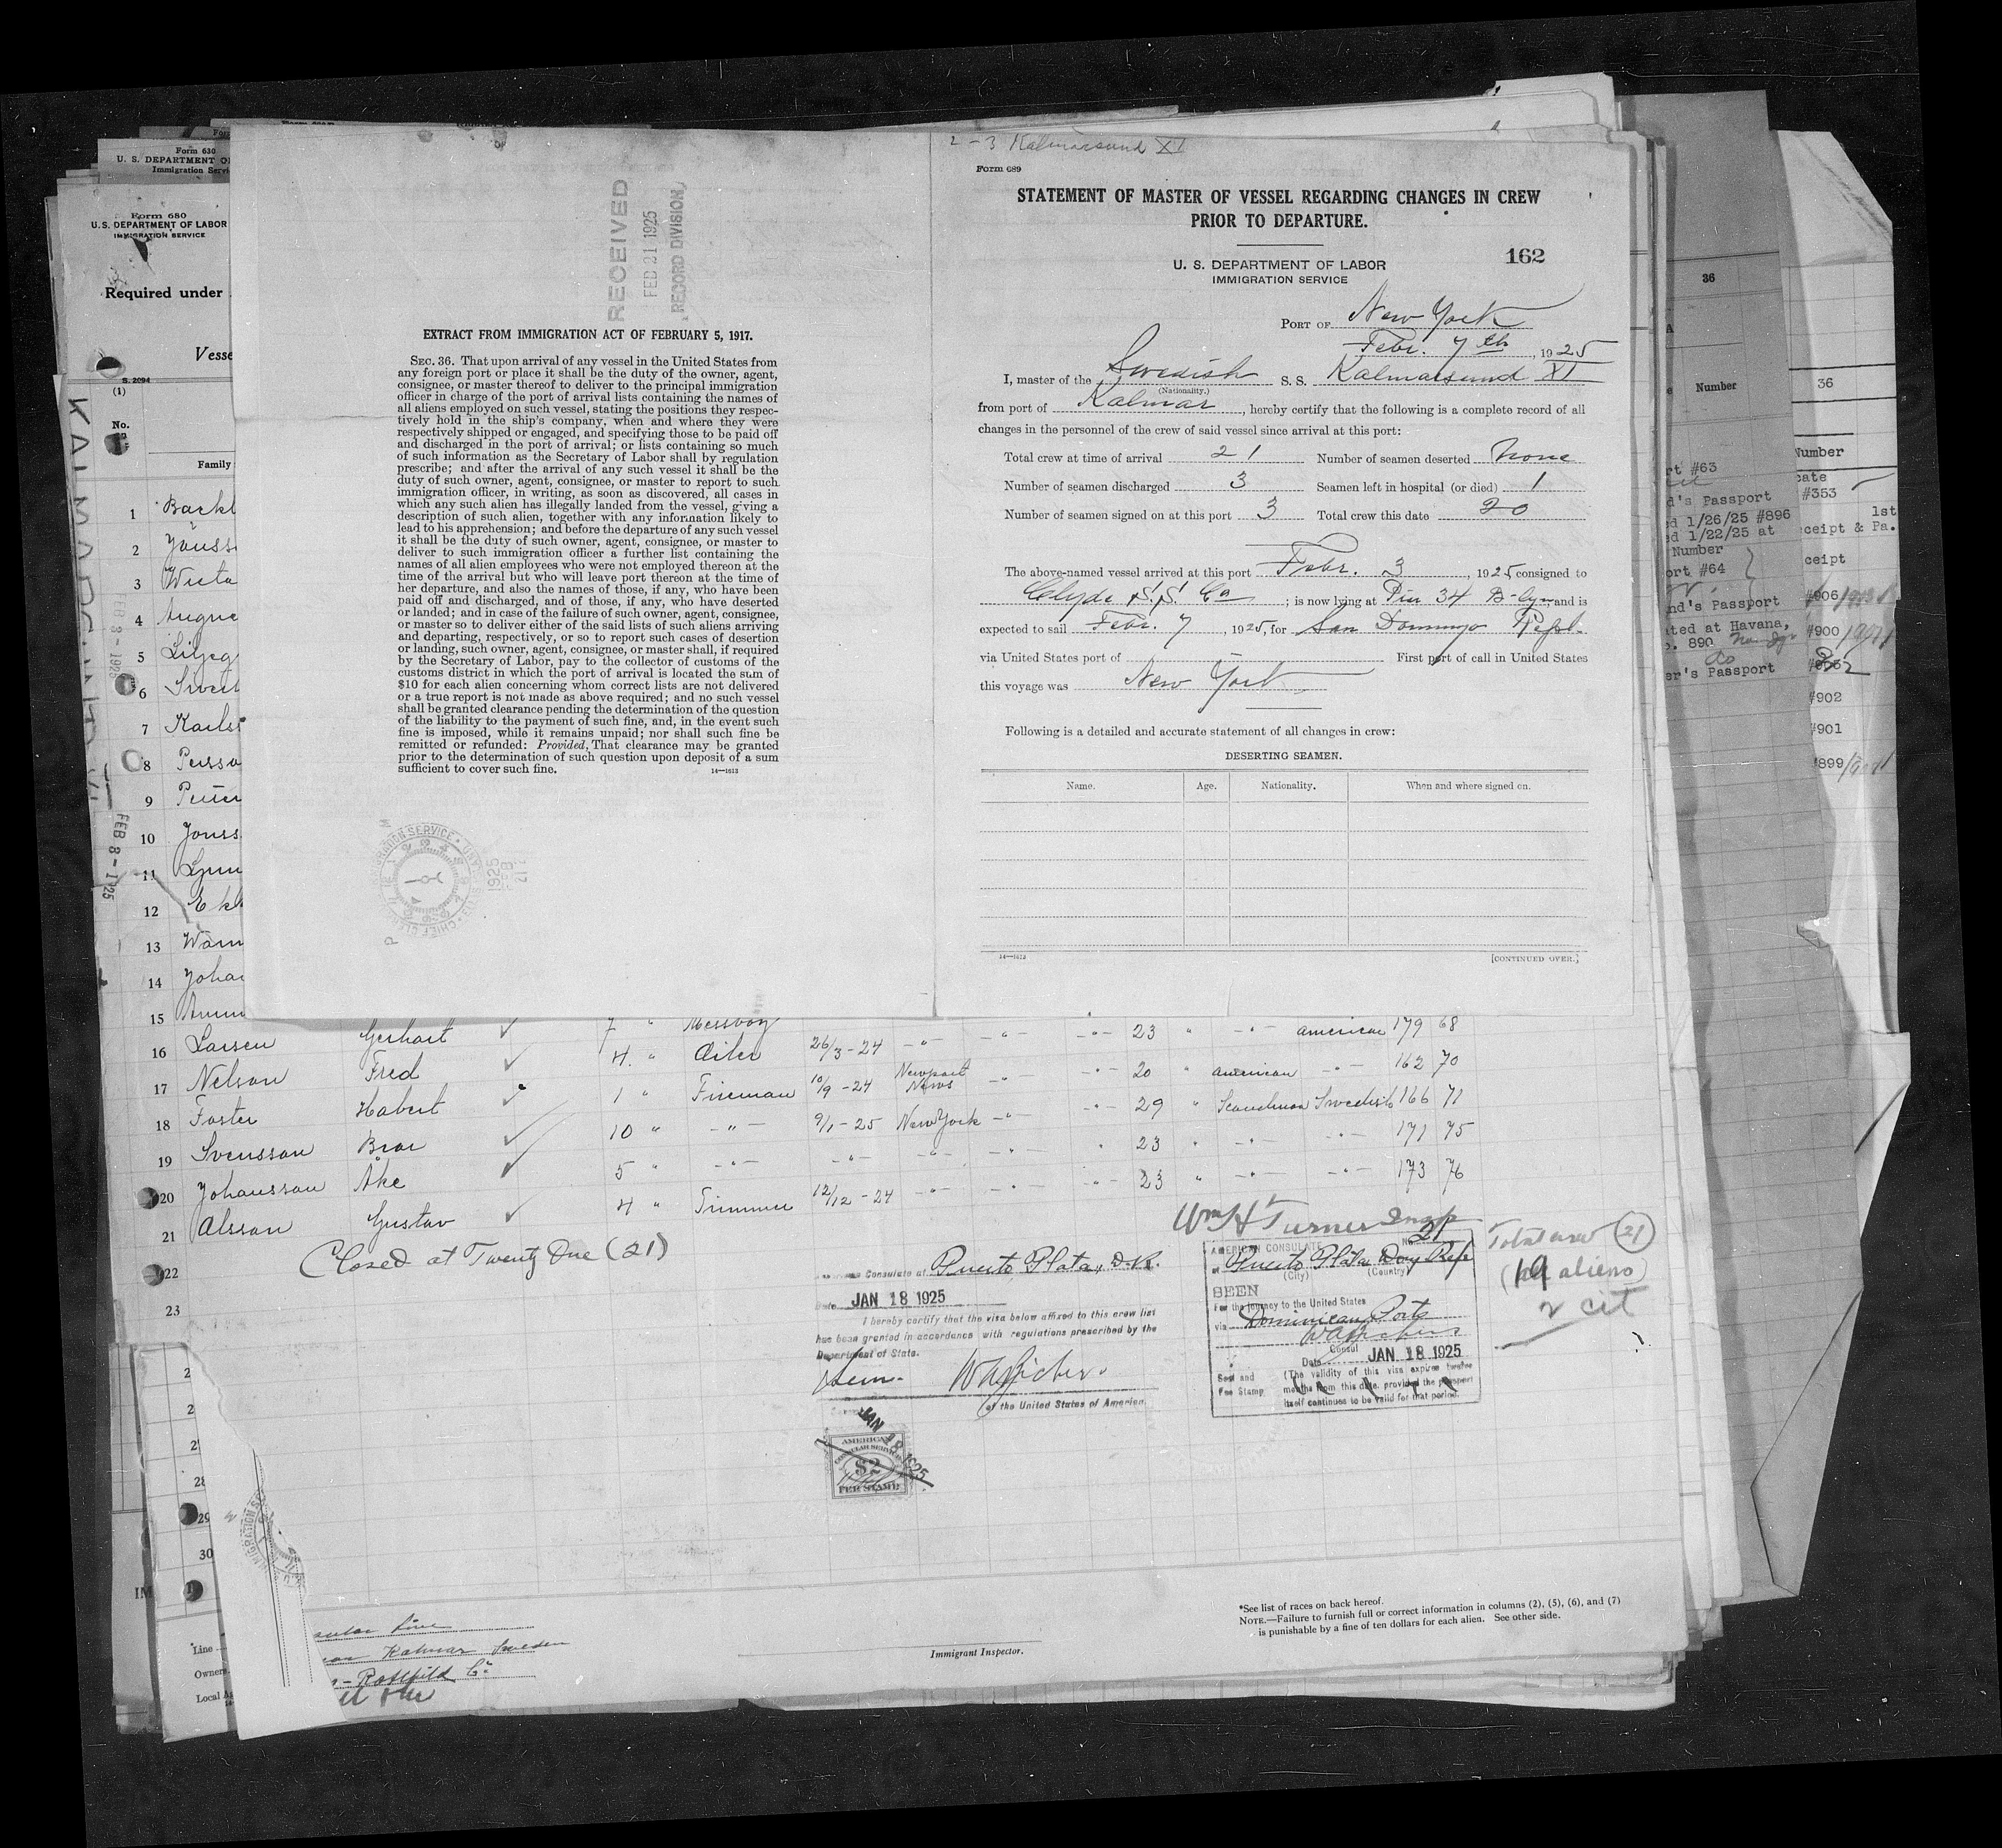 2-3 Kalmarsund XI
Form 689
STATEMENT OF MASTER OF VESSEL REGARDING CHANGES IN CREW
PRIOR TO DEPARTURE.
162
U. S. DEPARTMENT OF LABOR
IMMIGRATION SERVICE
PORT OF New York
Febr. 7th, 1925
I, master of the Swedish S. S. Kalmarsund XI
(Nationality.)
from port of Kalmar, hereby certify that the following is a complete record of all
changes in the personnel of the crew of said vessel since arrival at this port:
Total crew at time of arrival 21 Number of seamen deserted None
Number of seamen discharged 3 Seamen left in hospital (or died) 1
Number of seamen signed on at this port 3 Total crew this date 20
The above-named vessel arrived at this port Febr. 3, 1925 consigned to
Clyde S.S. Co; is now lying at Pier 34 B-lyn and is
expected to sail Febr. 7, 1925, for San Domingo Repbl.
via United States port of First port of call in United States
this voyage was New York
Following is a detailed and accurate statement of all changes in crew:
DESERTING SEAMEN.
Name. Age. Nationality. When and where signed on.
14—1613 [CONTINUED OVER.]
RECEIVED
FEB 21 1925
RECORD DIVISION
EXTRACT FROM IMMIGRATION ACT OF FEBRUARY 5, 1917.
SEC. 36. That upon arrival of any vessel in the United States from
any foreign port or place it shall be the duty of the owner, agent,
consignee, or master thereof to deliver to the principal immigration
officer in charge of the port of arrival lists containing the names of
all aliens employed on such vessel, stating the positions they respec-
tively hold in the ship's company, when and where they were
respectively shipped or engaged, and specifying those to be paid off
and discharged in the port of arrival; or lists containing so much
of such information as the Secretary of Labor shall by regulation
prescribe; and after the arrival of any such vessel it shall be the
duty of such owner, agent, consignee, or master to report to such
immigration officer, in writing, as soon as discovered, all cases in
which any such alien has illegally landed from the vessel, giving a
description of such alien, together with any information likely to
lead to his apprehension; and before the departure of any such vessel
it shall be the duty of such owner, agent, consignee, or master to
deliver to such immigration officer a further list containing the
names of all alien employees who were not employed thereon at the
time of the arrival but who will leave port thereon at the time of
her departure, and also the names of those, if any, who have been
paid off and discharged, and of those, if any, who have deserted
or landed; and in case of the failure of such owner, agent, consignee,
or master so to deliver either of the said lists of such aliens arriving
and departing, respectively, or so to report such cases of desertion
or landing, such owner, agent, consignee, or master shall, if required
by the Secretary of Labor, pay to the collector of customs of the
customs district in which the port of arrival is located the sum of
$10 for each alien concerning whom correct lists are not delivered
or a true report is not made as above required; and no such vessel
shall be granted clearance pending the determination of the question
of the liability to the payment of such fine, and, in the event such
fine is imposed, while it remains unpaid; nor shall such fine be
remitted or refunded: Provided, That clearance may be granted
prior to the determination of such question upon deposit of a sum
sufficient to cover such fine. 14—1613
Form 630
U. S. DEPARTMENT O
Immigration Servi
Form 680
U. S. DEPARTMENT OF LABOR
IMMIGRATION SERVICE
Required under
Vesse
S. 2094
(1)
No.
Family
KALMARSUND XI
FEB 3 - 1925
FEB 8 - 1925
1 Backl
2 Jonss
3
4
5
6
7 Karls
8 Persso
9
10 Jonss
11
12 Ekl
13
14 Johan
15 7 " Messboy
16 Larsen Gerhart 4 " Oiler 26/3-24 23 " american 179 68
17 Nelson Fred 1 " Fireman 10/9-24 Newport News 20 american 162 70
18 Foster Hobert 10 " 9/1-25 New York 29 " Swedish 166 71
19 Svensson Bror 5 " 23 171 75
20 Johansson Åke 4 " Trimmer 12/12-24 23 " 173 76
21 Olsson Gustav
22 Closed at Twenty One (21)
23
28
29
30
Wm H Turner Insp
American Consulate at Puerto Plata, D.R.
Date JAN 18 1925
I hereby certify that the visa below affixed to this crew list
has been granted in accordance with regulations prescribed by the
Department of State.
of the United States of America.
JAN 18 1925
AMERICAN
CONSULAR SERVICE
$2
FEE STAMP
AMERICAN CONSULATE No. 21
at Puerto Plata Dom Rep
(City) (Country)
SEEN
For the journey to the United States
via Dominican Ports
Consul
Date JAN 18 1925
Seal and
Fee Stamp
(The validity of this visa expires twelve
months from this date provided the passport
itself continues to be valid for that period.
Total crew (21)
(19 aliens)
2 cit
*See list of races on back hereof.
NOTE.—Failure to furnish full or correct information in columns (2), (5), (6), and (7)
is punishable by a fine of ten dollars for each alien. See other side.
Immigrant Inspector.
Line
Owners Kalmar Sweden
Local A
36
Number
rt #63
d's Passport
ed 1/26/25 #896
ed 1/22/25 at
Number
ort #64
nd's Passport
ated at Havana,
o. 890
do
er's Passport
36
Number
cate
#353
1st
ceipt & Pa.
ceipt
#906
#900
#902
#901
#899